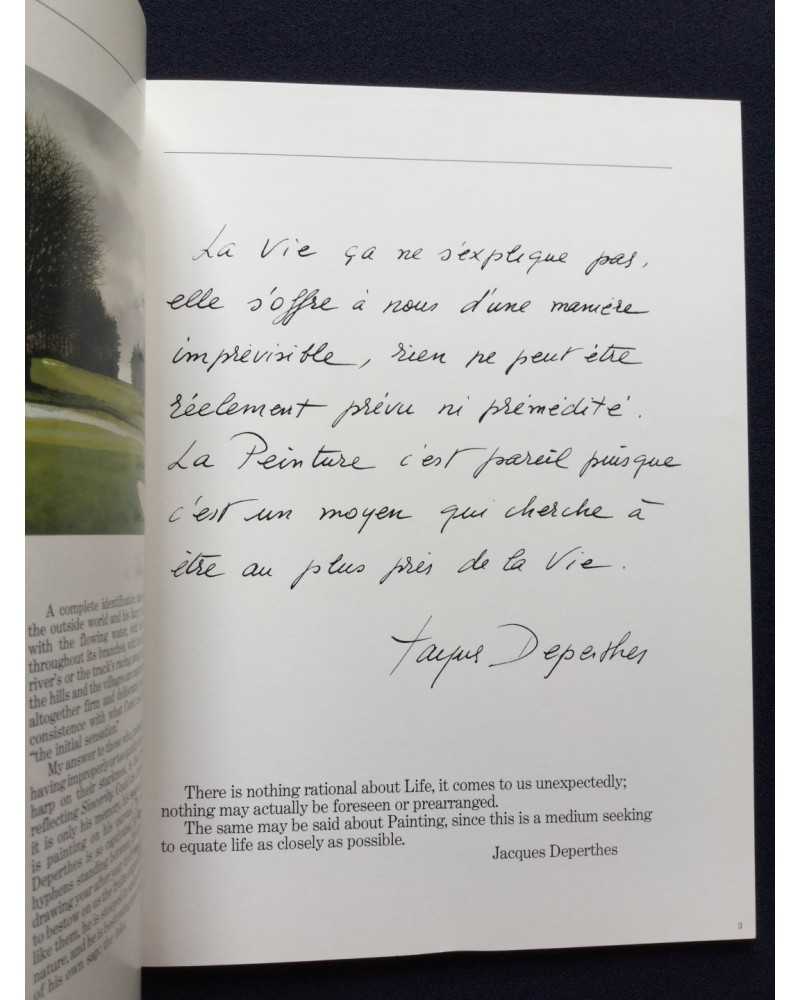 A complete identification
the outside world and his
with the flowing water,
throughout its branches,
river's or the track's
the hills and the villages
altogether firm and
consistence with what
"the initial sensation."
My answer to those who
having improperly
harp on their
reflecting Sincerity,
it is only his
is painting on his
Deperthes is so
hyphens standing
drawing your
to bestow on us the
like them, he is
nature, and he is
of his own sap; the
La Vie ça ne s'explique pas,
elle s'offre à nous d'une manière
imprévisible, rien ne peut être
réelement prévu ni prémédité.
La Peinture c'est pareil puisque
c'est un moyen qui cherche à
être au plus près de la Vie.
Jacques Deperthes
There is nothing rational about Life, it comes to us unexpectedly;
nothing may actually be foreseen or prearranged.
The same may be said about Painting, since this is a medium seeking
to equate life as closely as possible.
Jacques Deperthes
3